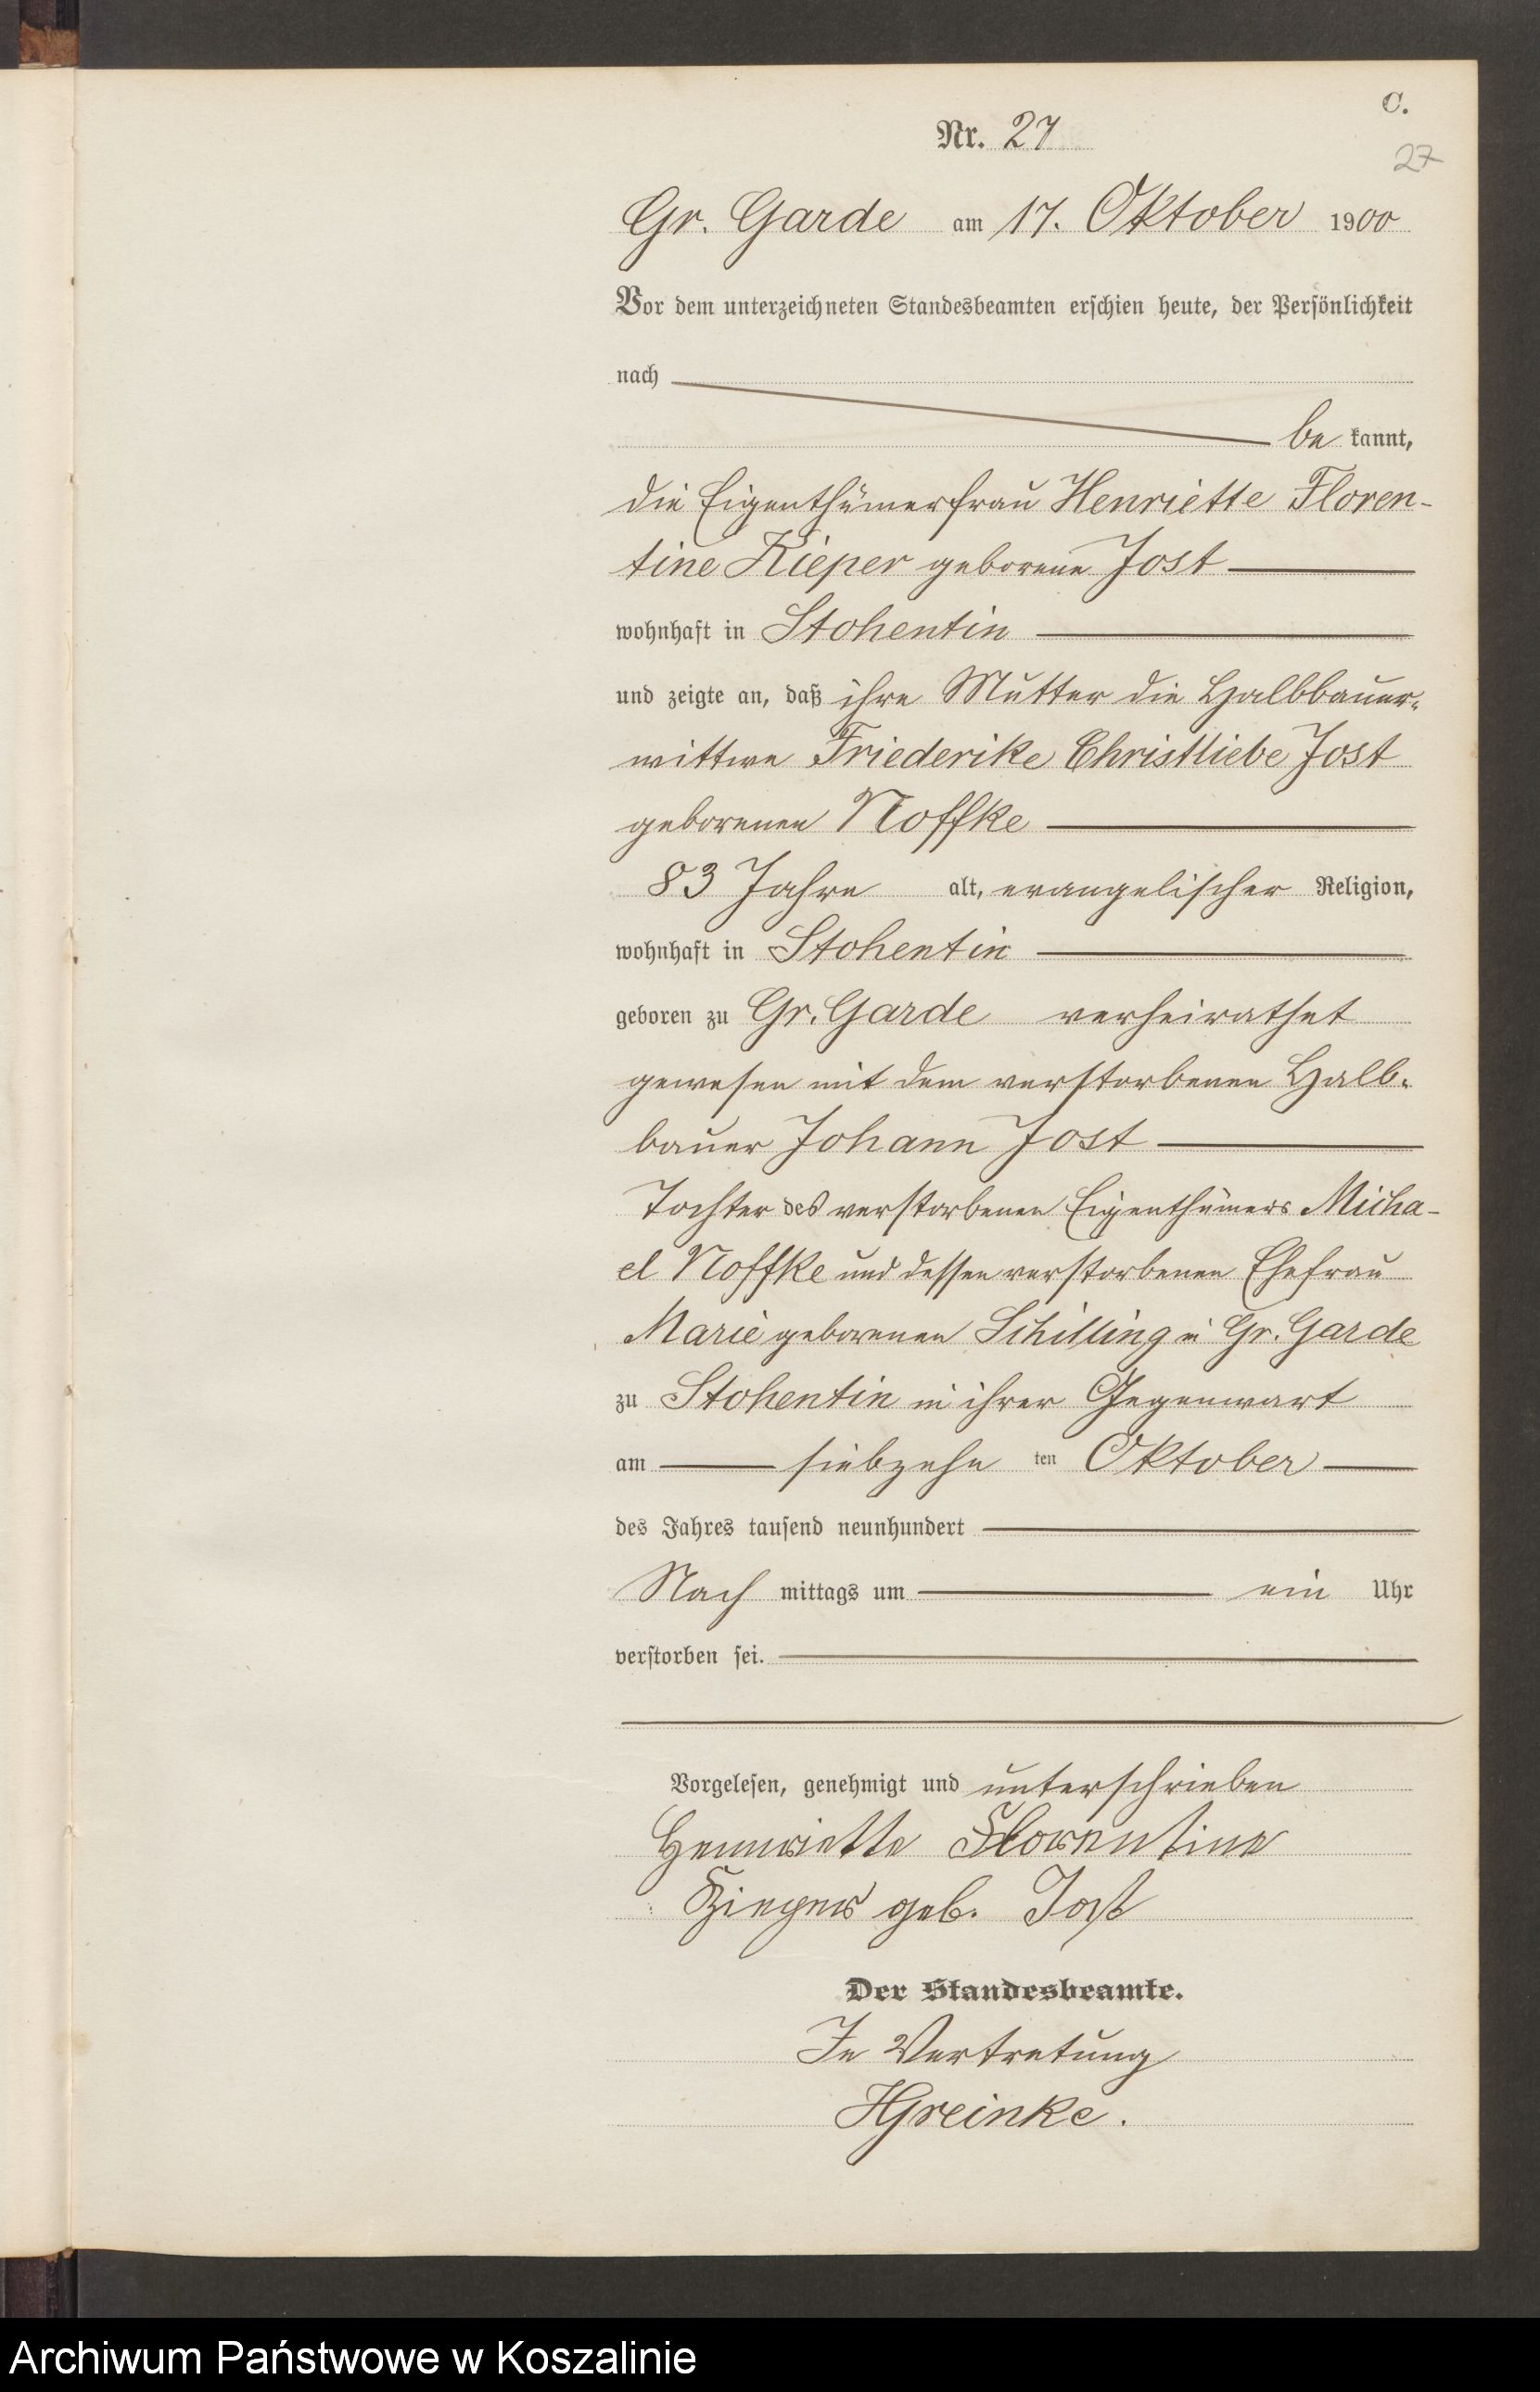 C.
Nr. 27
27
Gr. Garde am 17. Oktober 1900
Vor dem unterzeichneten Standesbeamten erschien heute, der Persönlichkeit
nach
be kannt,
die Eigenthümerfrau Henriette Floren-
tine Kieper geborene Jost
wohnhaft in Stohentin
und zeigte an, daß ihre Mutter die Halbbauer-
wittwe Friederike Christliebe Jost
geborenen Noffke
83 Jahre alt, evangelischer Religion,
wohnhaft in Stohentin
geboren zu Gr. Garde verheirathet
gewesen mit dem verstorbenen Halb-
bauer Johann Jost
Tochter des verstorbenen Eigenthümers Micha-
el Noffke und dessen verstorbenen Ehefrau
Marie geborenen Schilling in Gr. Garde
zu Stohentin in ihrer Gegenwart
am siebzehn ten Oktober
des Jahres tausend neunhundert
Nach mittags um ein Uhr
verstorben sei.
Vorgelesen, genehmigt und unterschrieben
Hennriette Florentine
Kieper geb. Jost
Der Standesbeamte.
In Vertretung
HGreinke.
Archiwum Państwowe w Koszalinie